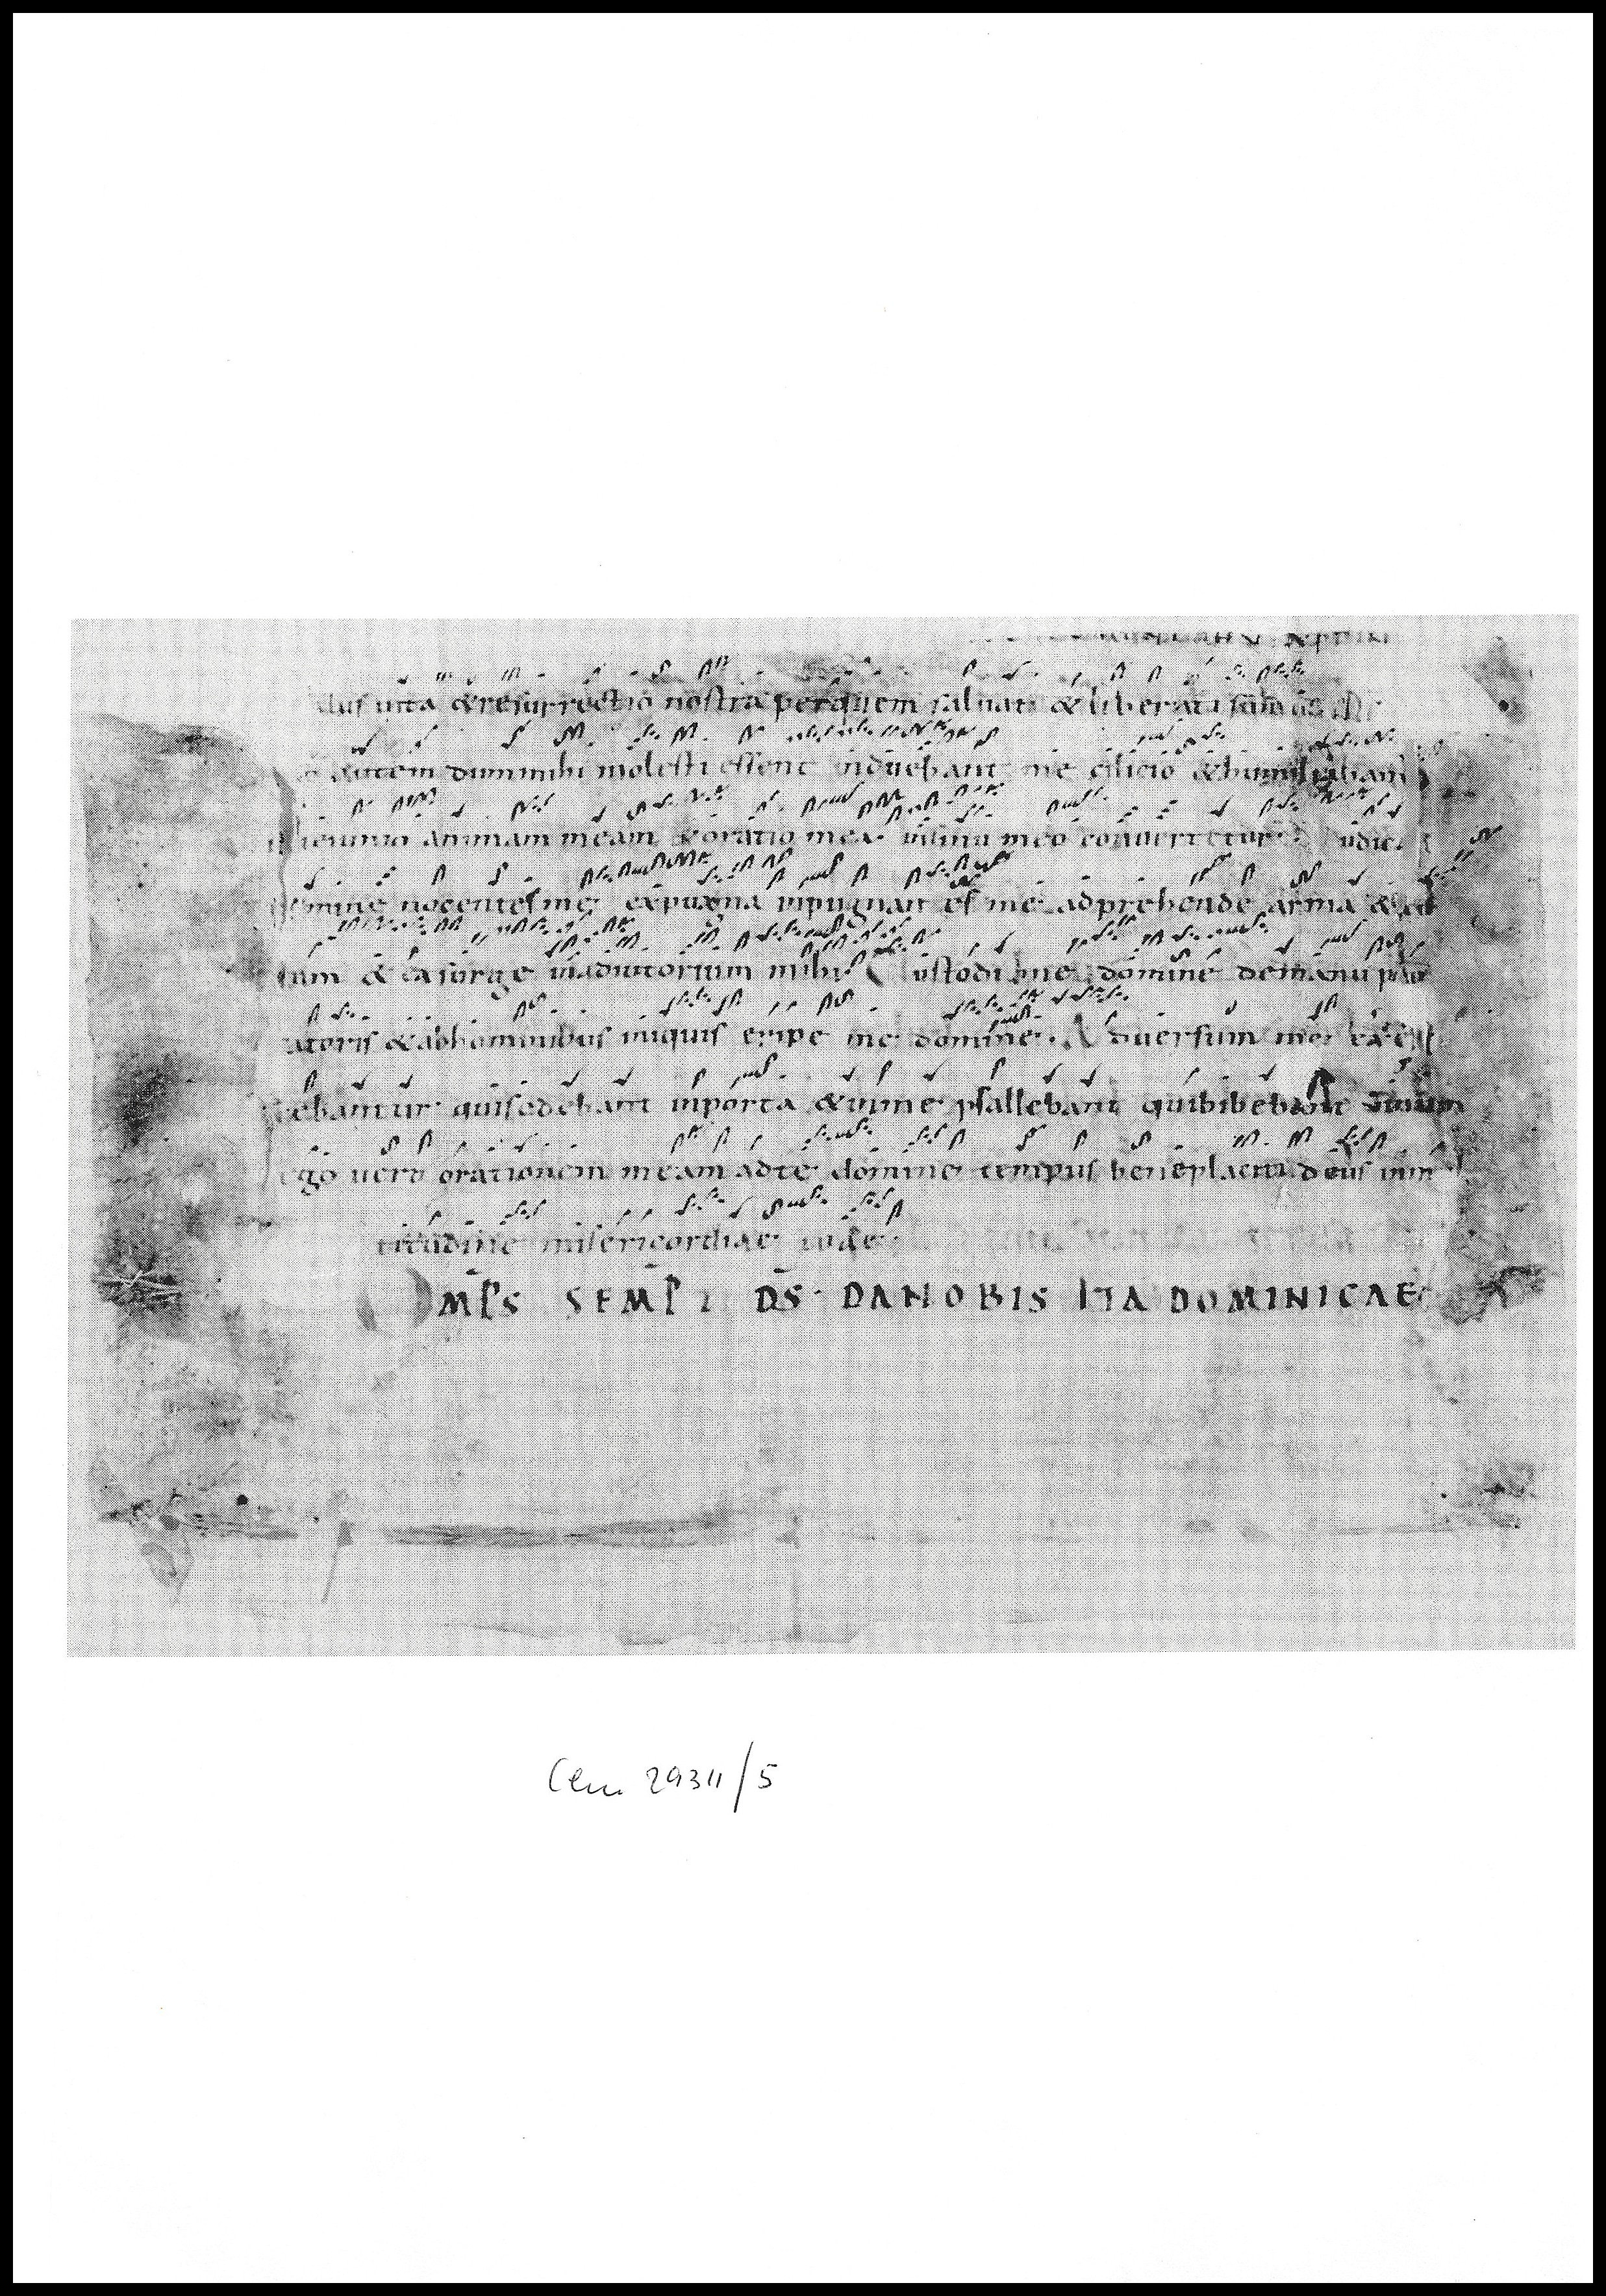 & resurrectio nostra per quem saluati & liberati sumus
autem dum mihi molesti essent induebam me cilicio & humiliabam
ieiunio animam meam & oratio mea in sinu meo conuertetur iudica
nocentes me expugna inpugnantes me adprehende arma &
& exsurge in adiutorium mihi Custodi me domine de manu
atoris & ab hominibus iniquis eripe me domine Aduersum me exer
cebantur qui sedebant in porta & in me psallebant qui bibebant uinum
ego uero orationem meam ad te domine tempus beneplaciti deus in
titudine misericordiae tuae
OMPS SEMP DS DA NOBIS ITA DOMINICAE
Clm 29311/5